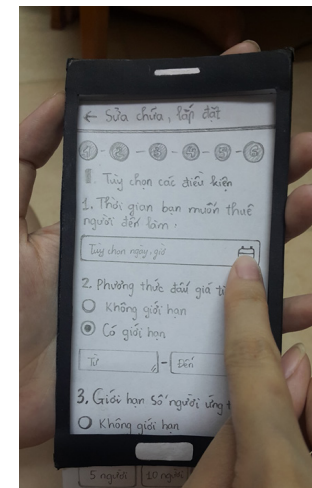 ← Sửa chữa, lắp đặt
1 - 2 - 3 - 4 - 5 - 6
Tùy chọn các điều kiện
1. Thời gian bạn muốn thuê
người đến làm:
Tùy chọn ngày, giờ
2. Phương thức đấu giá
Không giới hạn
Có giới hạn
Từ - Đến
3. Giới hạn số người ứng
Không giới hạn
5 người 10 người